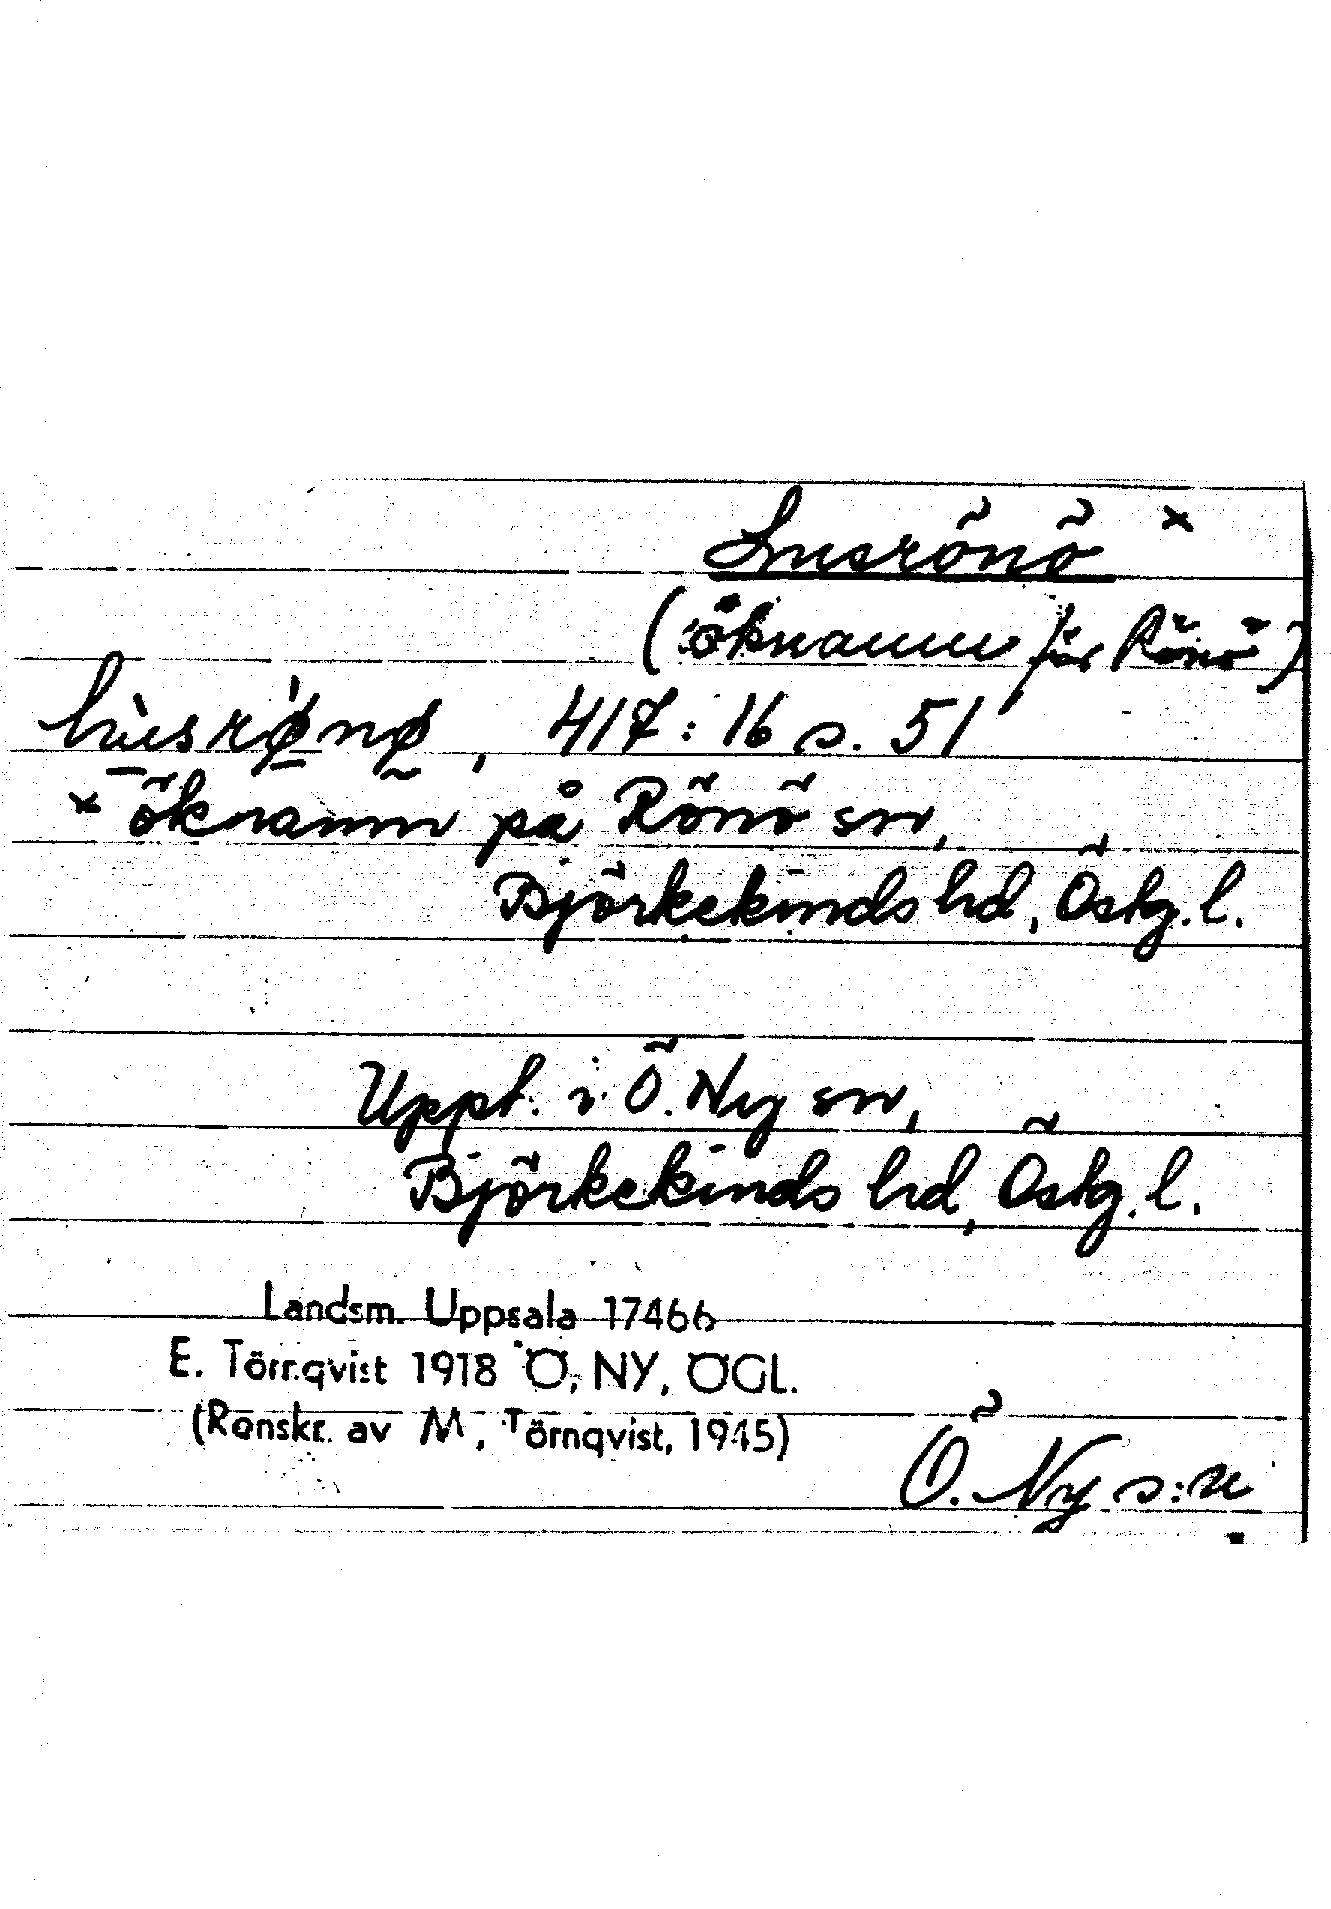 Lusrönö ×
(öknamn för Rönö)
lùsrø̀nø, 417:16 s. 51
× öknamn på Rönö sn,
Björkekinds hd, Östg.l.
Uppt. i Ö. Ny sn,
Björkekinds hd, Östg.l.
Landsm. Uppsala 17466
E. Törnqvist 1918 Ö, NY, ÖGL.
(Renskr. av M, Törnqvist, 1945)
Ö. Ny s:n